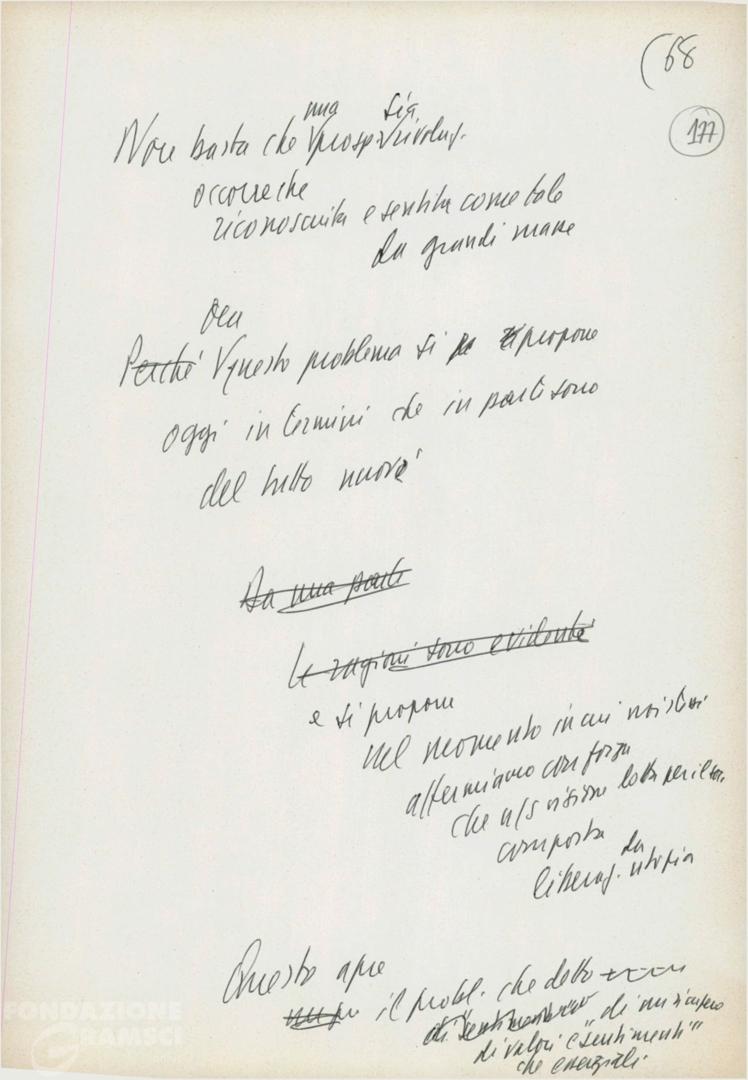 (68
177
una sia
Non basta che prosp. rivoluz.
occorre che
riconosciuta e sentita come tale
da grandi masse
Ora
Perché questo problema si propone
oggi in termini che in parte sono
del tutto nuovi
Da una parte
Le ragioni sono evidenti
e si propone
nel momento in cui noi stessi
affermiamo con forza
che n/s visione lotta per il soc.
comporta
liberaz. da utopia
Questo apre
il probl. che detto
di "sentimenti" di un recupero
di valori e "sentimenti"
che essenziali
FONDAZIONE
GRAMSCI